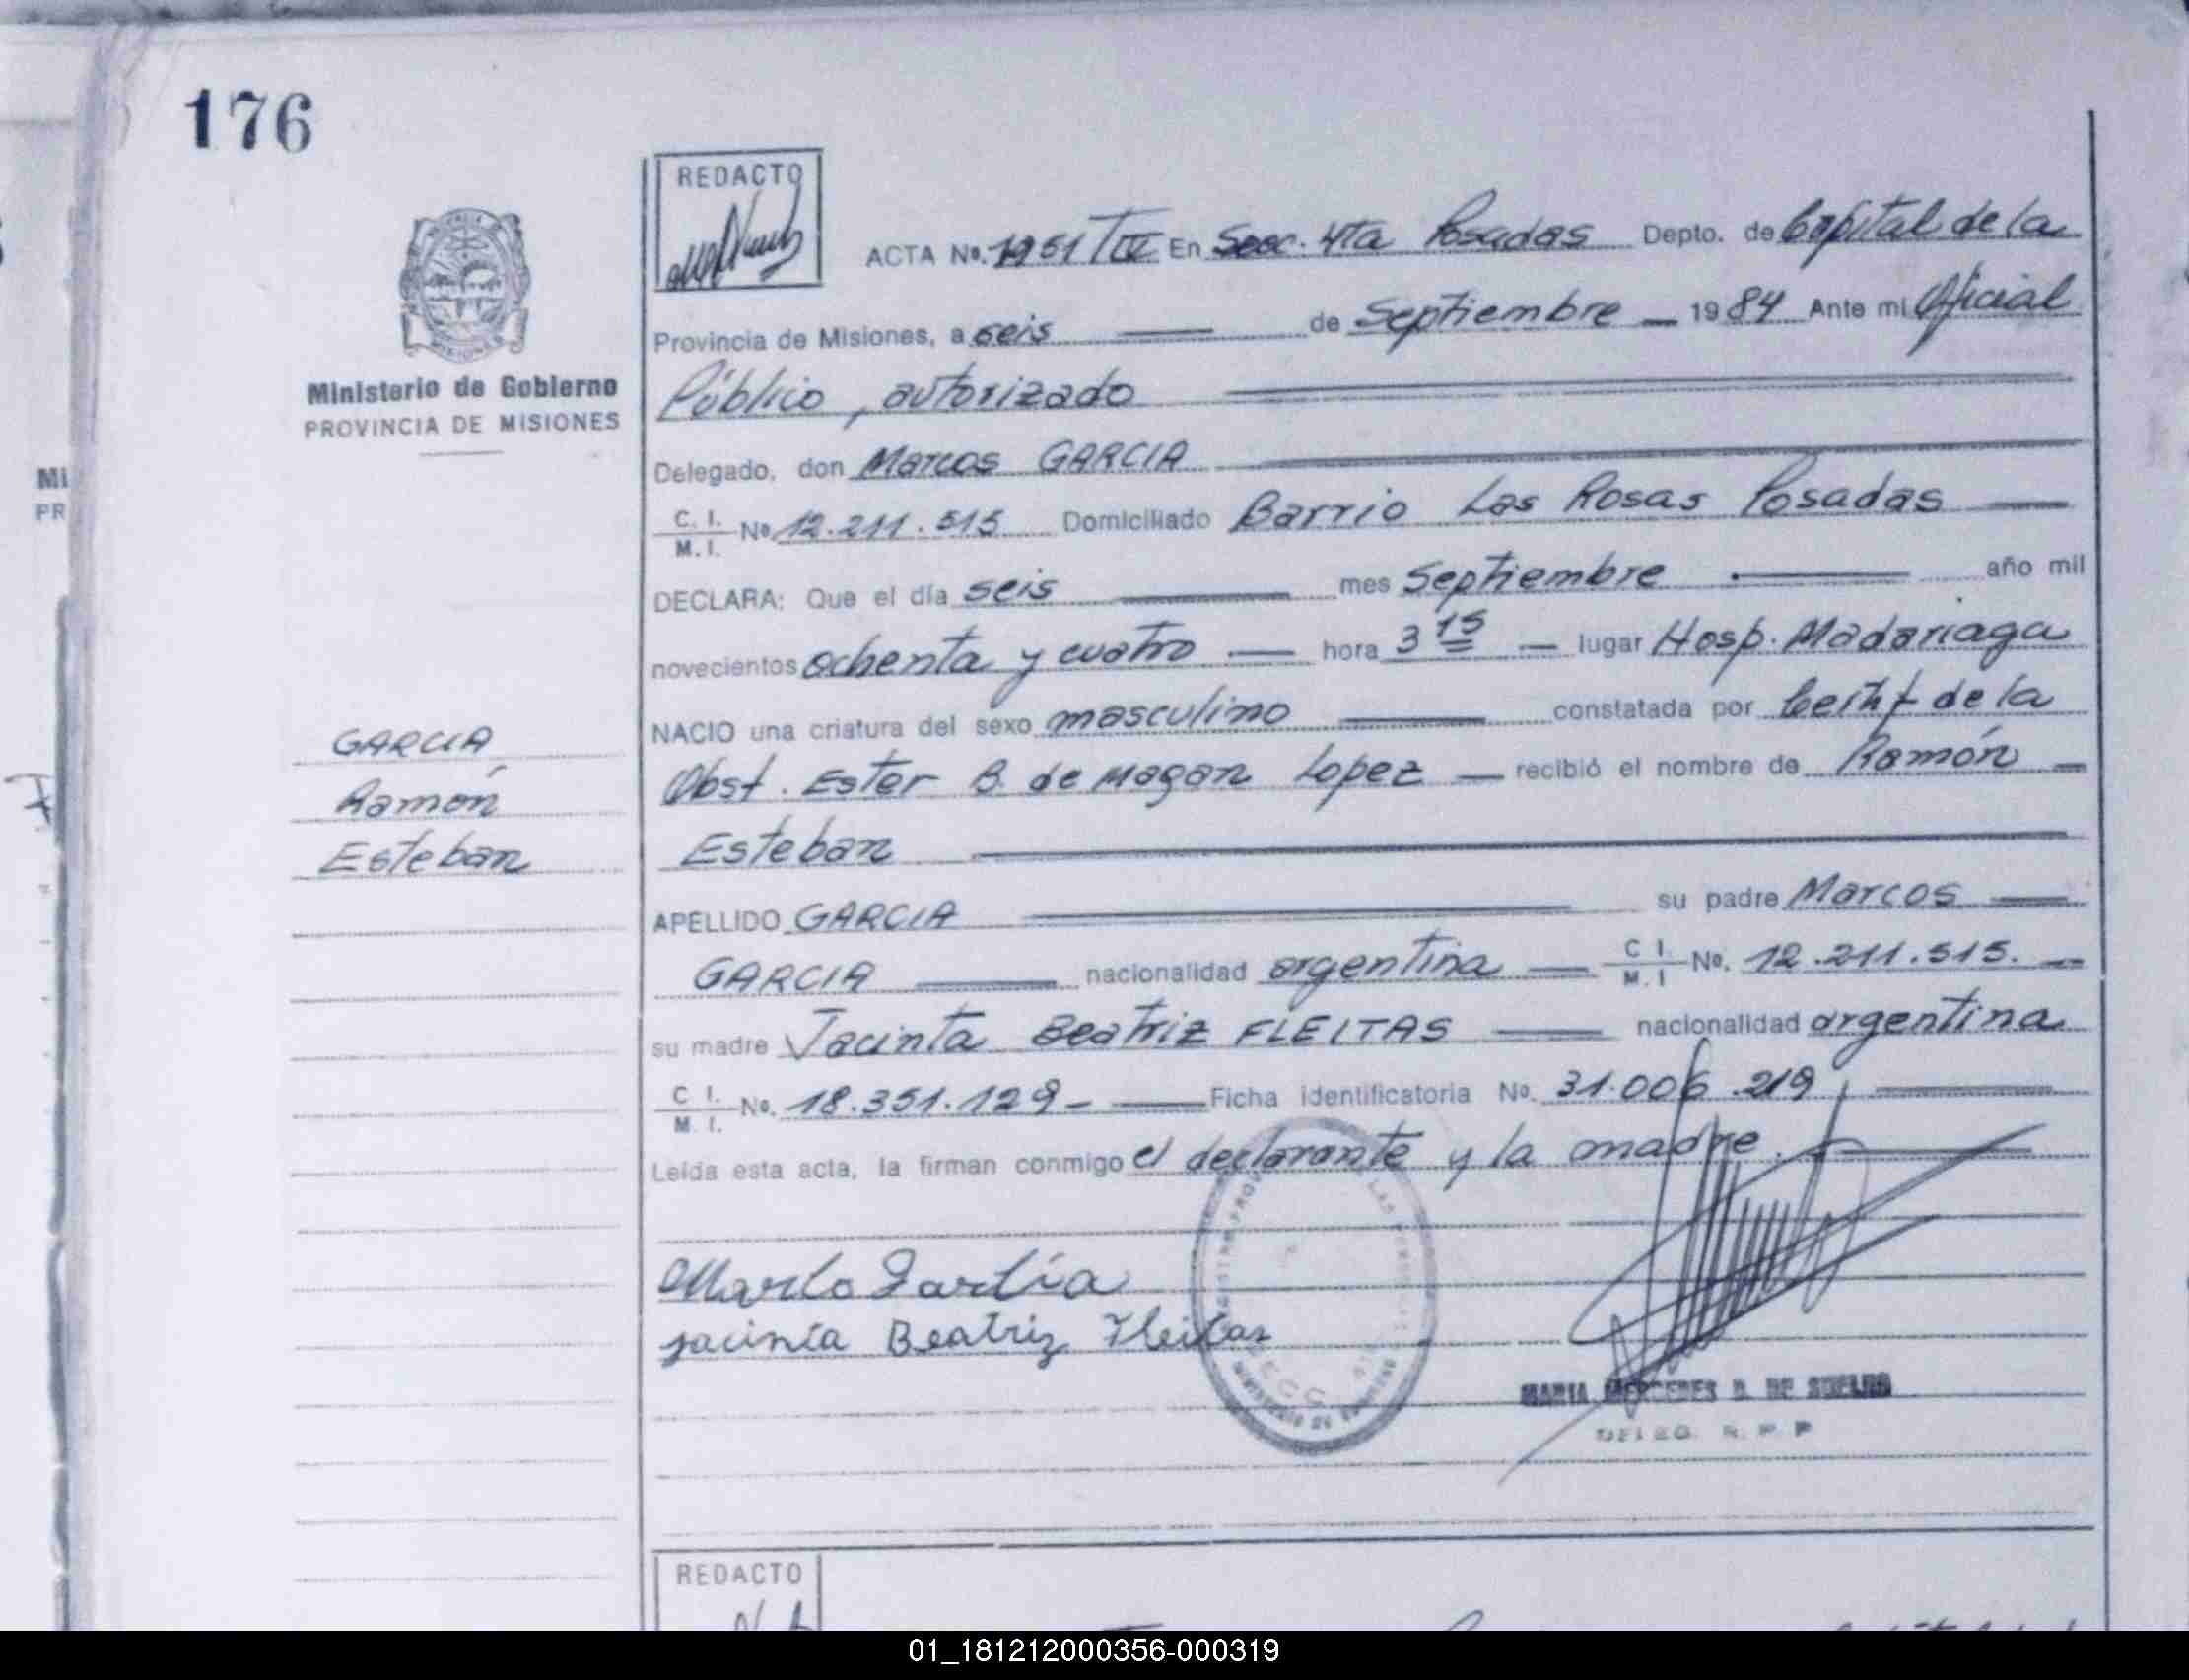 176
REDACTO
ACTA No. 1951 T IV En Secc. 4ta Posadas Depto. de Capital de la
Provincia de Misiones, a seis de Septiembre 1984 Ante mi Oficial
Público, autorizado
Ministerio de Gobierno
PROVINCIA DE MISIONES
Delegado, don Marcos GARCIA
C. I. M. I. No 12.211.515 Domiciliado Barrio Las Rosas Posadas
DECLARA: Que el día seis mes Septiembre año mil
novecientos ochenta y cuatro hora 3 15 lugar Hosp. Madariaga
NACIO una criatura del sexo masculino constatada por Certif de la
Obst. Ester B. de Magan Lopez recibió el nombre de Ramón
Esteban
GARCIA
Ramón
Esteban
APELLIDO GARCIA su padre Marcos
GARCIA nacionalidad argentina C I. M. I No. 12.211.515.
su madre Jacinta Beatriz FLEITAS nacionalidad argentina
C I. M. I. No. 18.351.129 - Ficha identificatoria No. 31.006.219
Leída esta acta, la firman conmigo el declarante y la madre.
Marco Garcia
jacinta Beatriz Fleitas
MARIA MERCEDES D. DE
DELEG. R. P. P
REDACTO
MI
PR
01_181212000356-000319